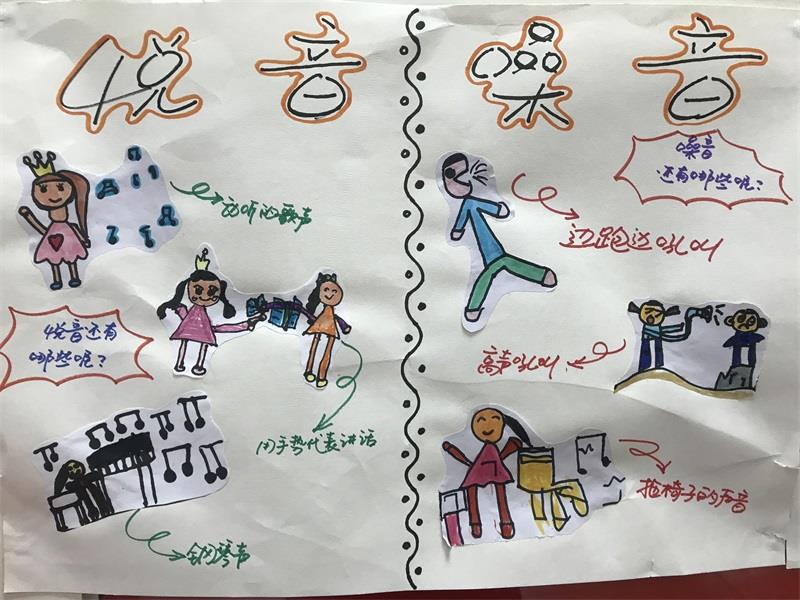 悦音
好听的歌声
悦音还有
哪些呢?
用手势代表讲话
钢琴声
噪音
噪音
还有哪些呢?
边跑边吼叫
高声吼叫.
拖椅子的声音